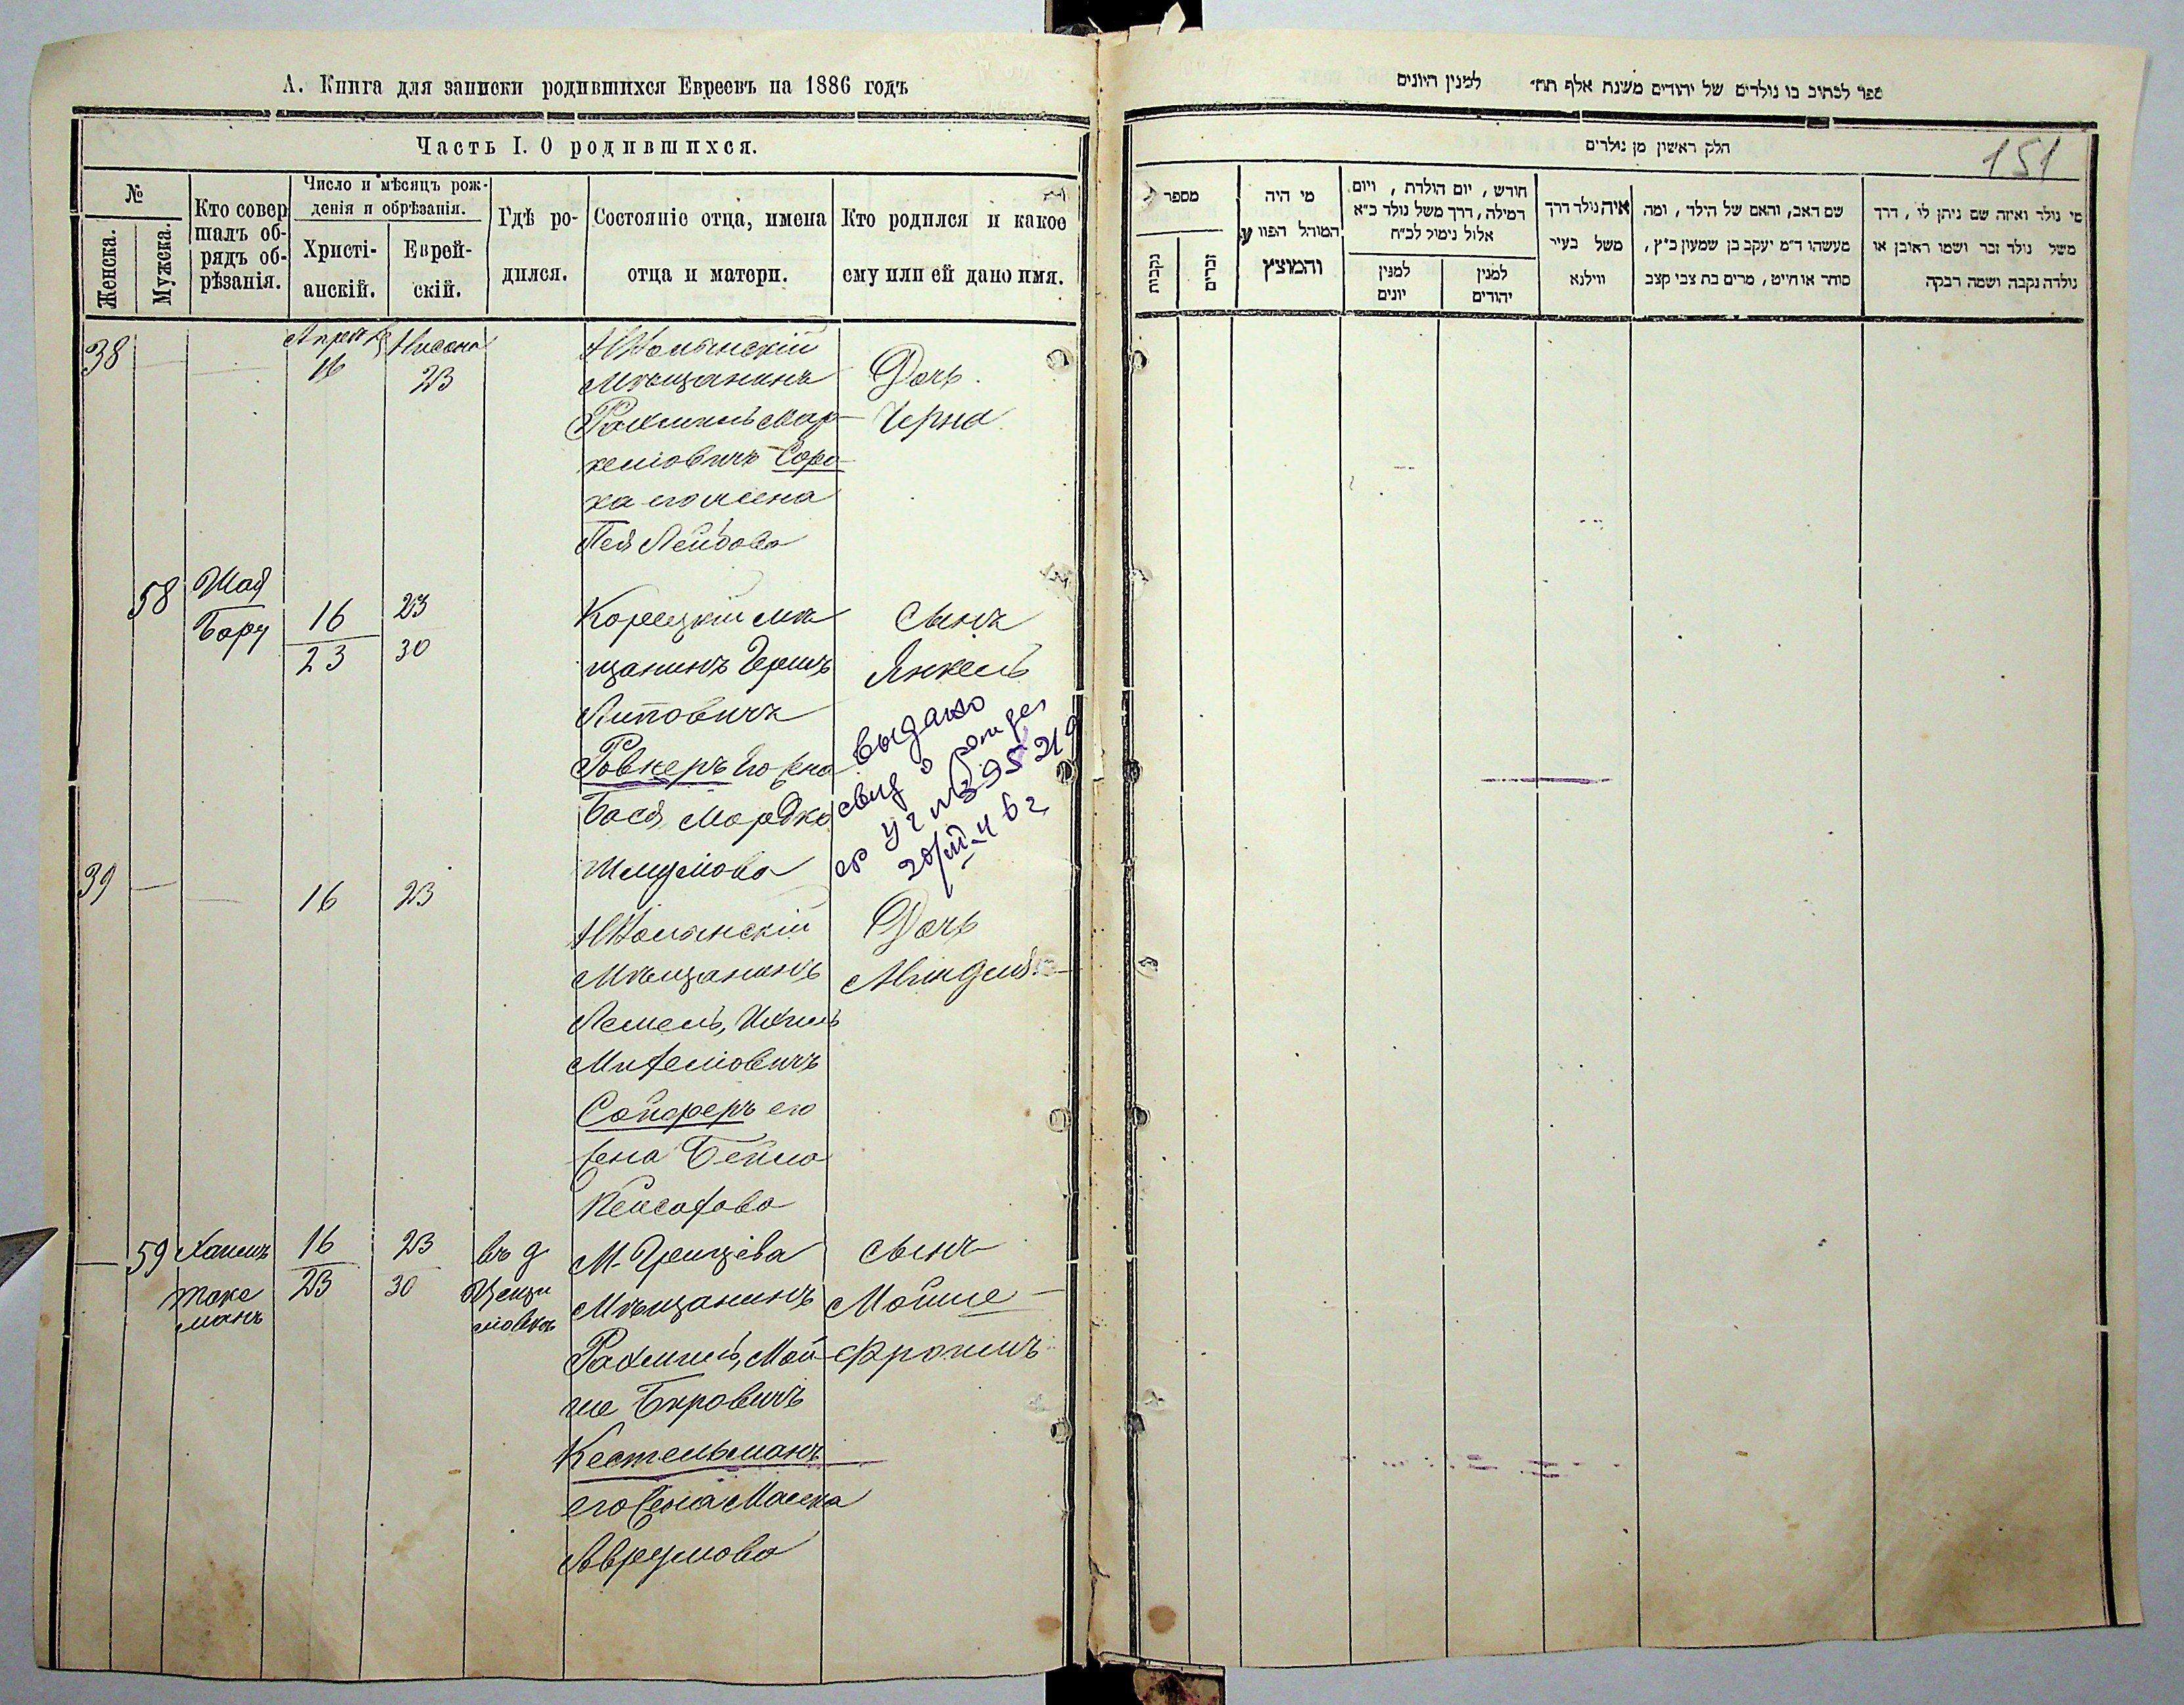 А. Книга для записки родившихся Евреевъ на 1886 годъ
Часть I. О родившихся.
№
Женска.
Мужска.
Кто совер
шалъ об-
рядъ об-
рѣзанія.
Число и мѣсяцъ рож-
денія и обрѣзанія.
Христі-
анскій.
Еврей-
скій.
Гдѣ ро-
дился.
Состояніе отца, имена
отца и матери.
Кто родился и какое
ему или ей дано имя.
38
Апрель
16
Нисона
23
Мѣщанинъ
Рахмиль Мор-
келіовичъ Соро
ка его жена
Лейбова
Дочь
Черна
58
Шая
Бару
16
23
23
30
Корецкій мѣ
щанинъ Гершъ
Липовичъ
Ровнеръ Его жена
Бася Мордко
Шмулiова
Сынъ
Янкель
выдано
свид о рожде
20/III-46 г
39
16
23
Мѣщанинъ
Лемель, Ихиль
Мителіовичъ
Сойферъ его
жена Бейла
Пейсахова
Дочь
59
Хаимъ
Токо
манъ
16
23
23
30
въ д
М. Грицева
Мѣщанинъ
Рахмиль, Мой
ше Беровичъ
Кестельманъ
его жена Масня
Аврумова
сынъ
Мойше
Фроимъ
ספר לכתיב בו נולדים של יהודים משנת אלף תת״ למנין היונים
151
חלק ראשון מן נולדים
מספר
נקבות
זכרים
מי היה
המוהל הפורע
והמוצץ
חודש, יום הולדת, ויום
המילה, דרך משל נולד כ״א
אלול נימול לכ״ח
למנין
יונים
למנין
יהודים
איה נולד דרך
משל בעיר
ווילנא
שם האב, והאם של הילד, ומה
מעשהו ד״מ יעקב בן שמעון כ״ץ,
סוחר או חייט, מרים בת צבי קצב
מי נולד ואיזה שם ניתן לו, דרך
משל נולד זכר ושמו ראובן או
נולדה נקבה ושמה רבקה